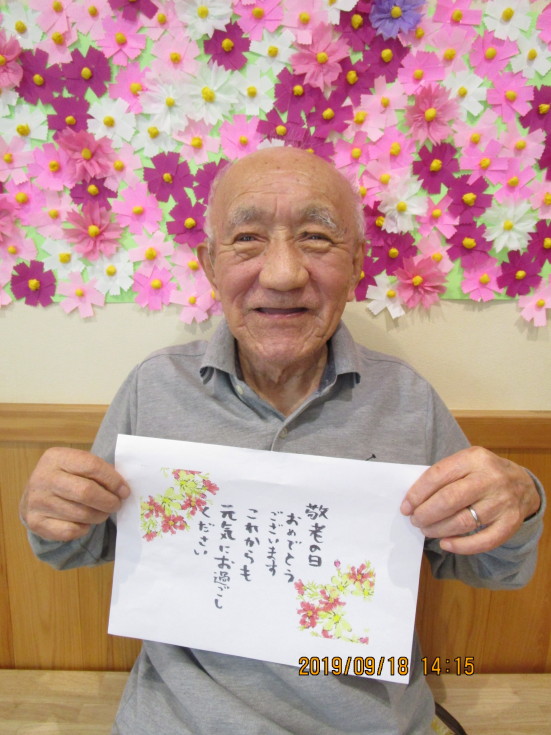 敬老の日
おめでとう
ございます
これからも
元気にお過ごし
ください
2019/09/18 14:15